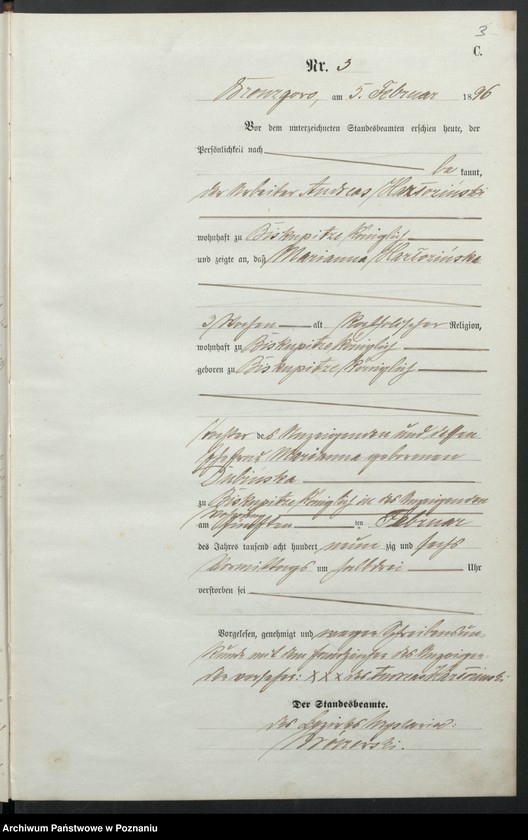 3
C.
Nr. 3
am 5. Februar 1896
Vor dem unterzeichneten Standesbeamten erschien heute, der
Persönlichkeit nach
be kannt,
der Arbeiter Andreas
wohnhaft zu Biskupitze Königlich
und zeigte an, daß Marianna
3 Wochen alt katholischer Religion,
wohnhaft zu Biskupitze Königlich
geboren zu Biskupitze Königlich
Tochter des Anzeigenden und dessen
Ehefrau Marianna geborenen
Dubinska
zu Biskupitze Königlich in des Anzeigenden
Wohnung
am fünften ten Februar
des Jahres tausend acht hundert neun zig und sechs
Vormittags um halb drei Uhr
verstorben sei
Vorgelesen, genehmigt und wegen Schreibensun-
kunde mit dem Handzeichen des Anzeigen-
den versehen: XXX des Andreas
Der Standesbeamte.
des
Archiwum Państwowe w Poznaniu